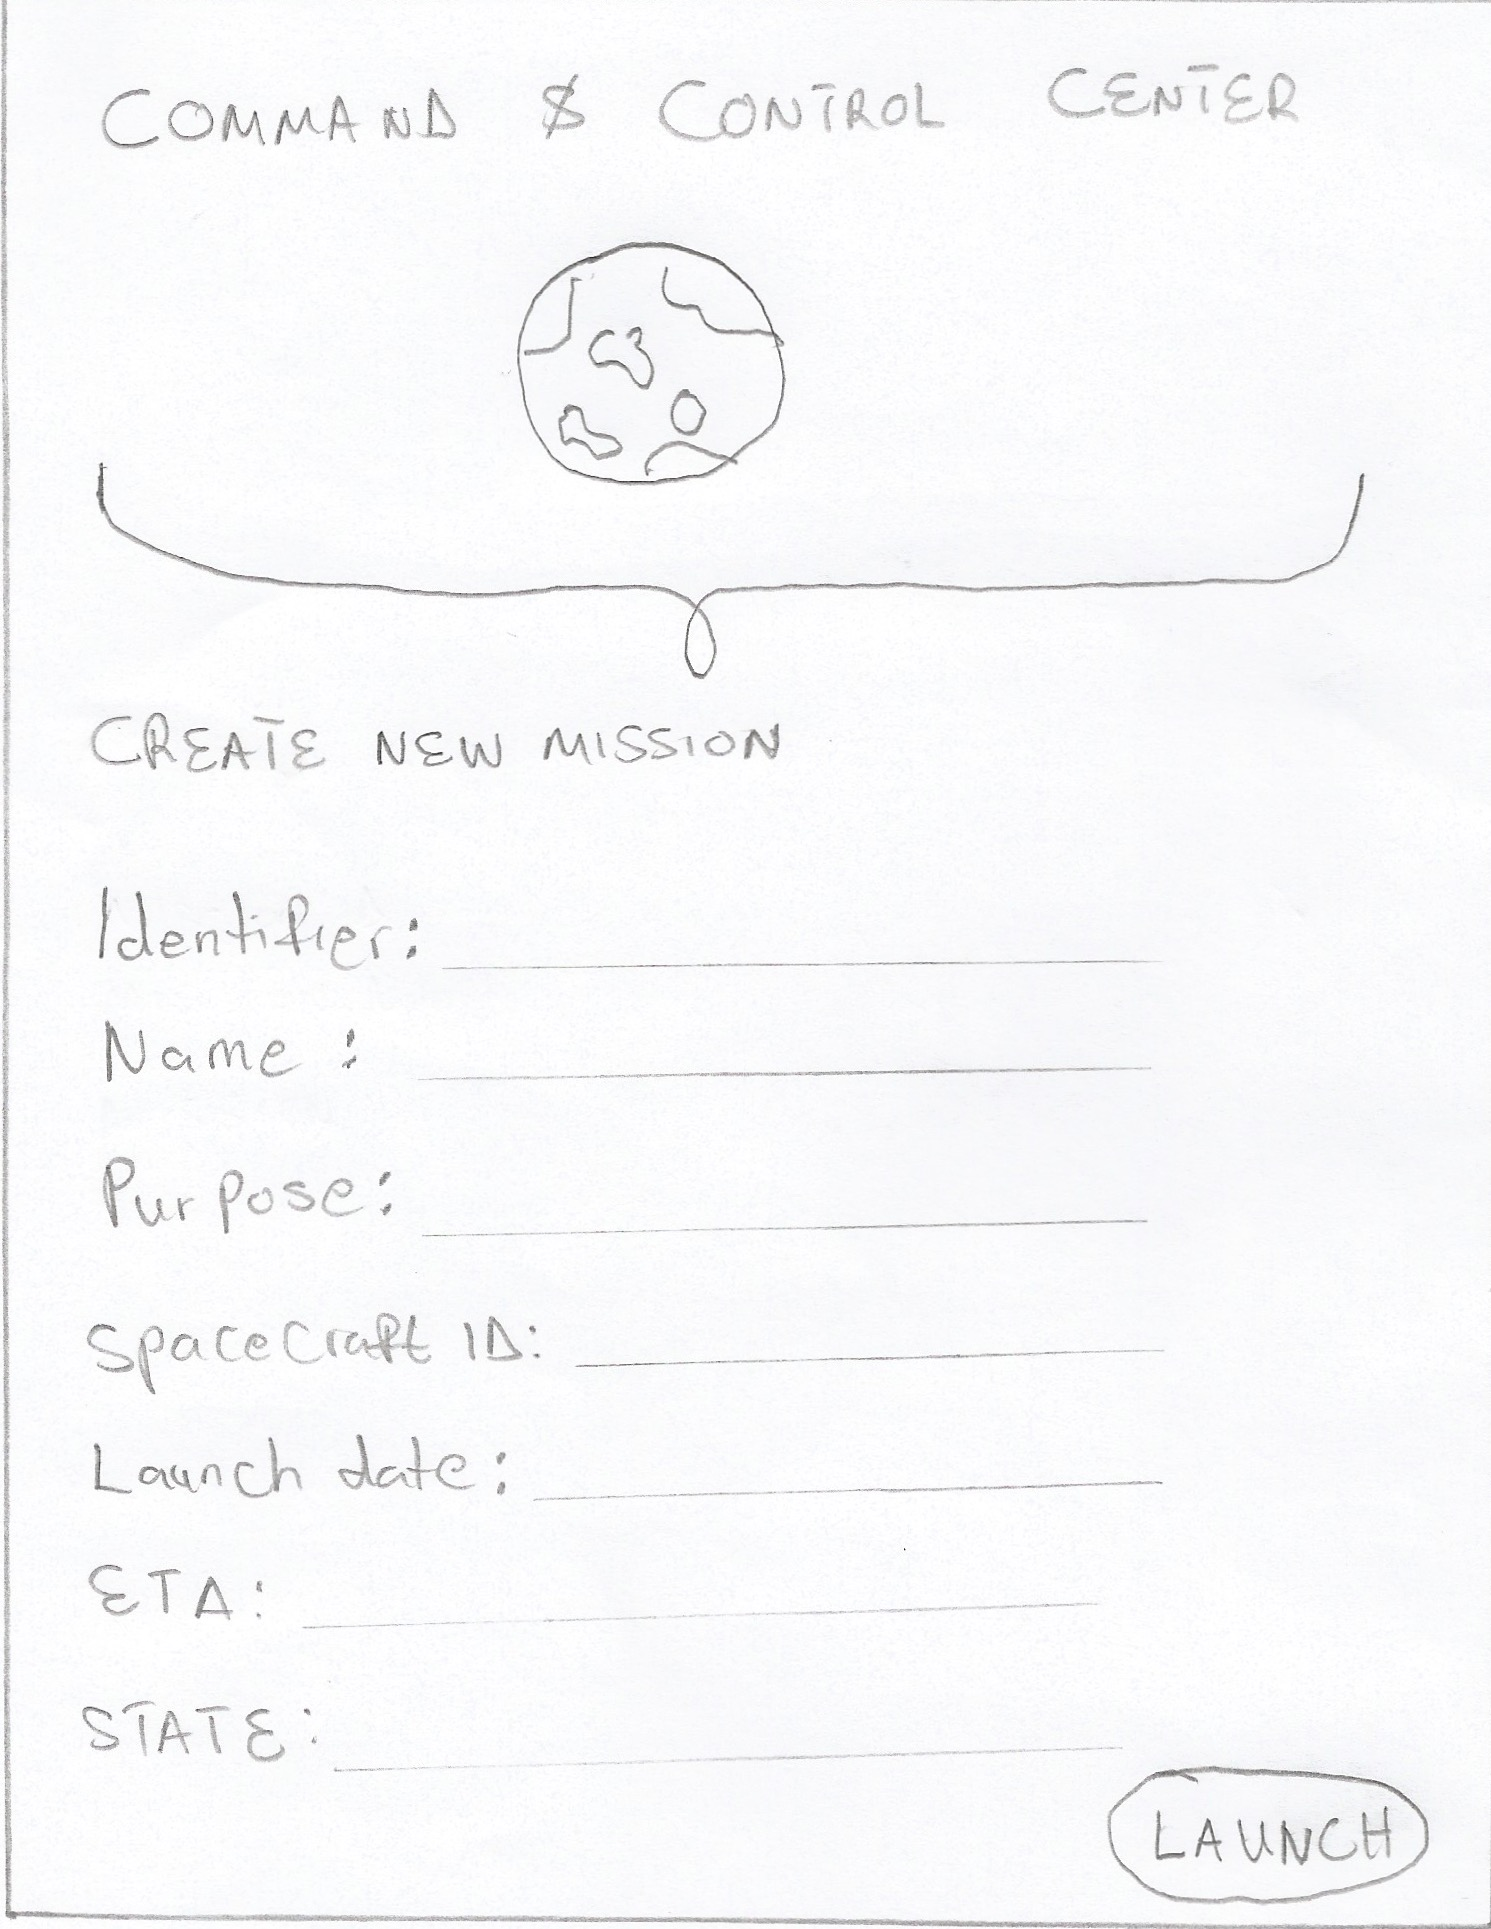 COMMAND & CONTROL CENTER
CREATE NEW MISSION
Identifier:
Name:
Purpose:
Spacecraft ID:
Launch date:
ETA:
STATE:
LAUNCH